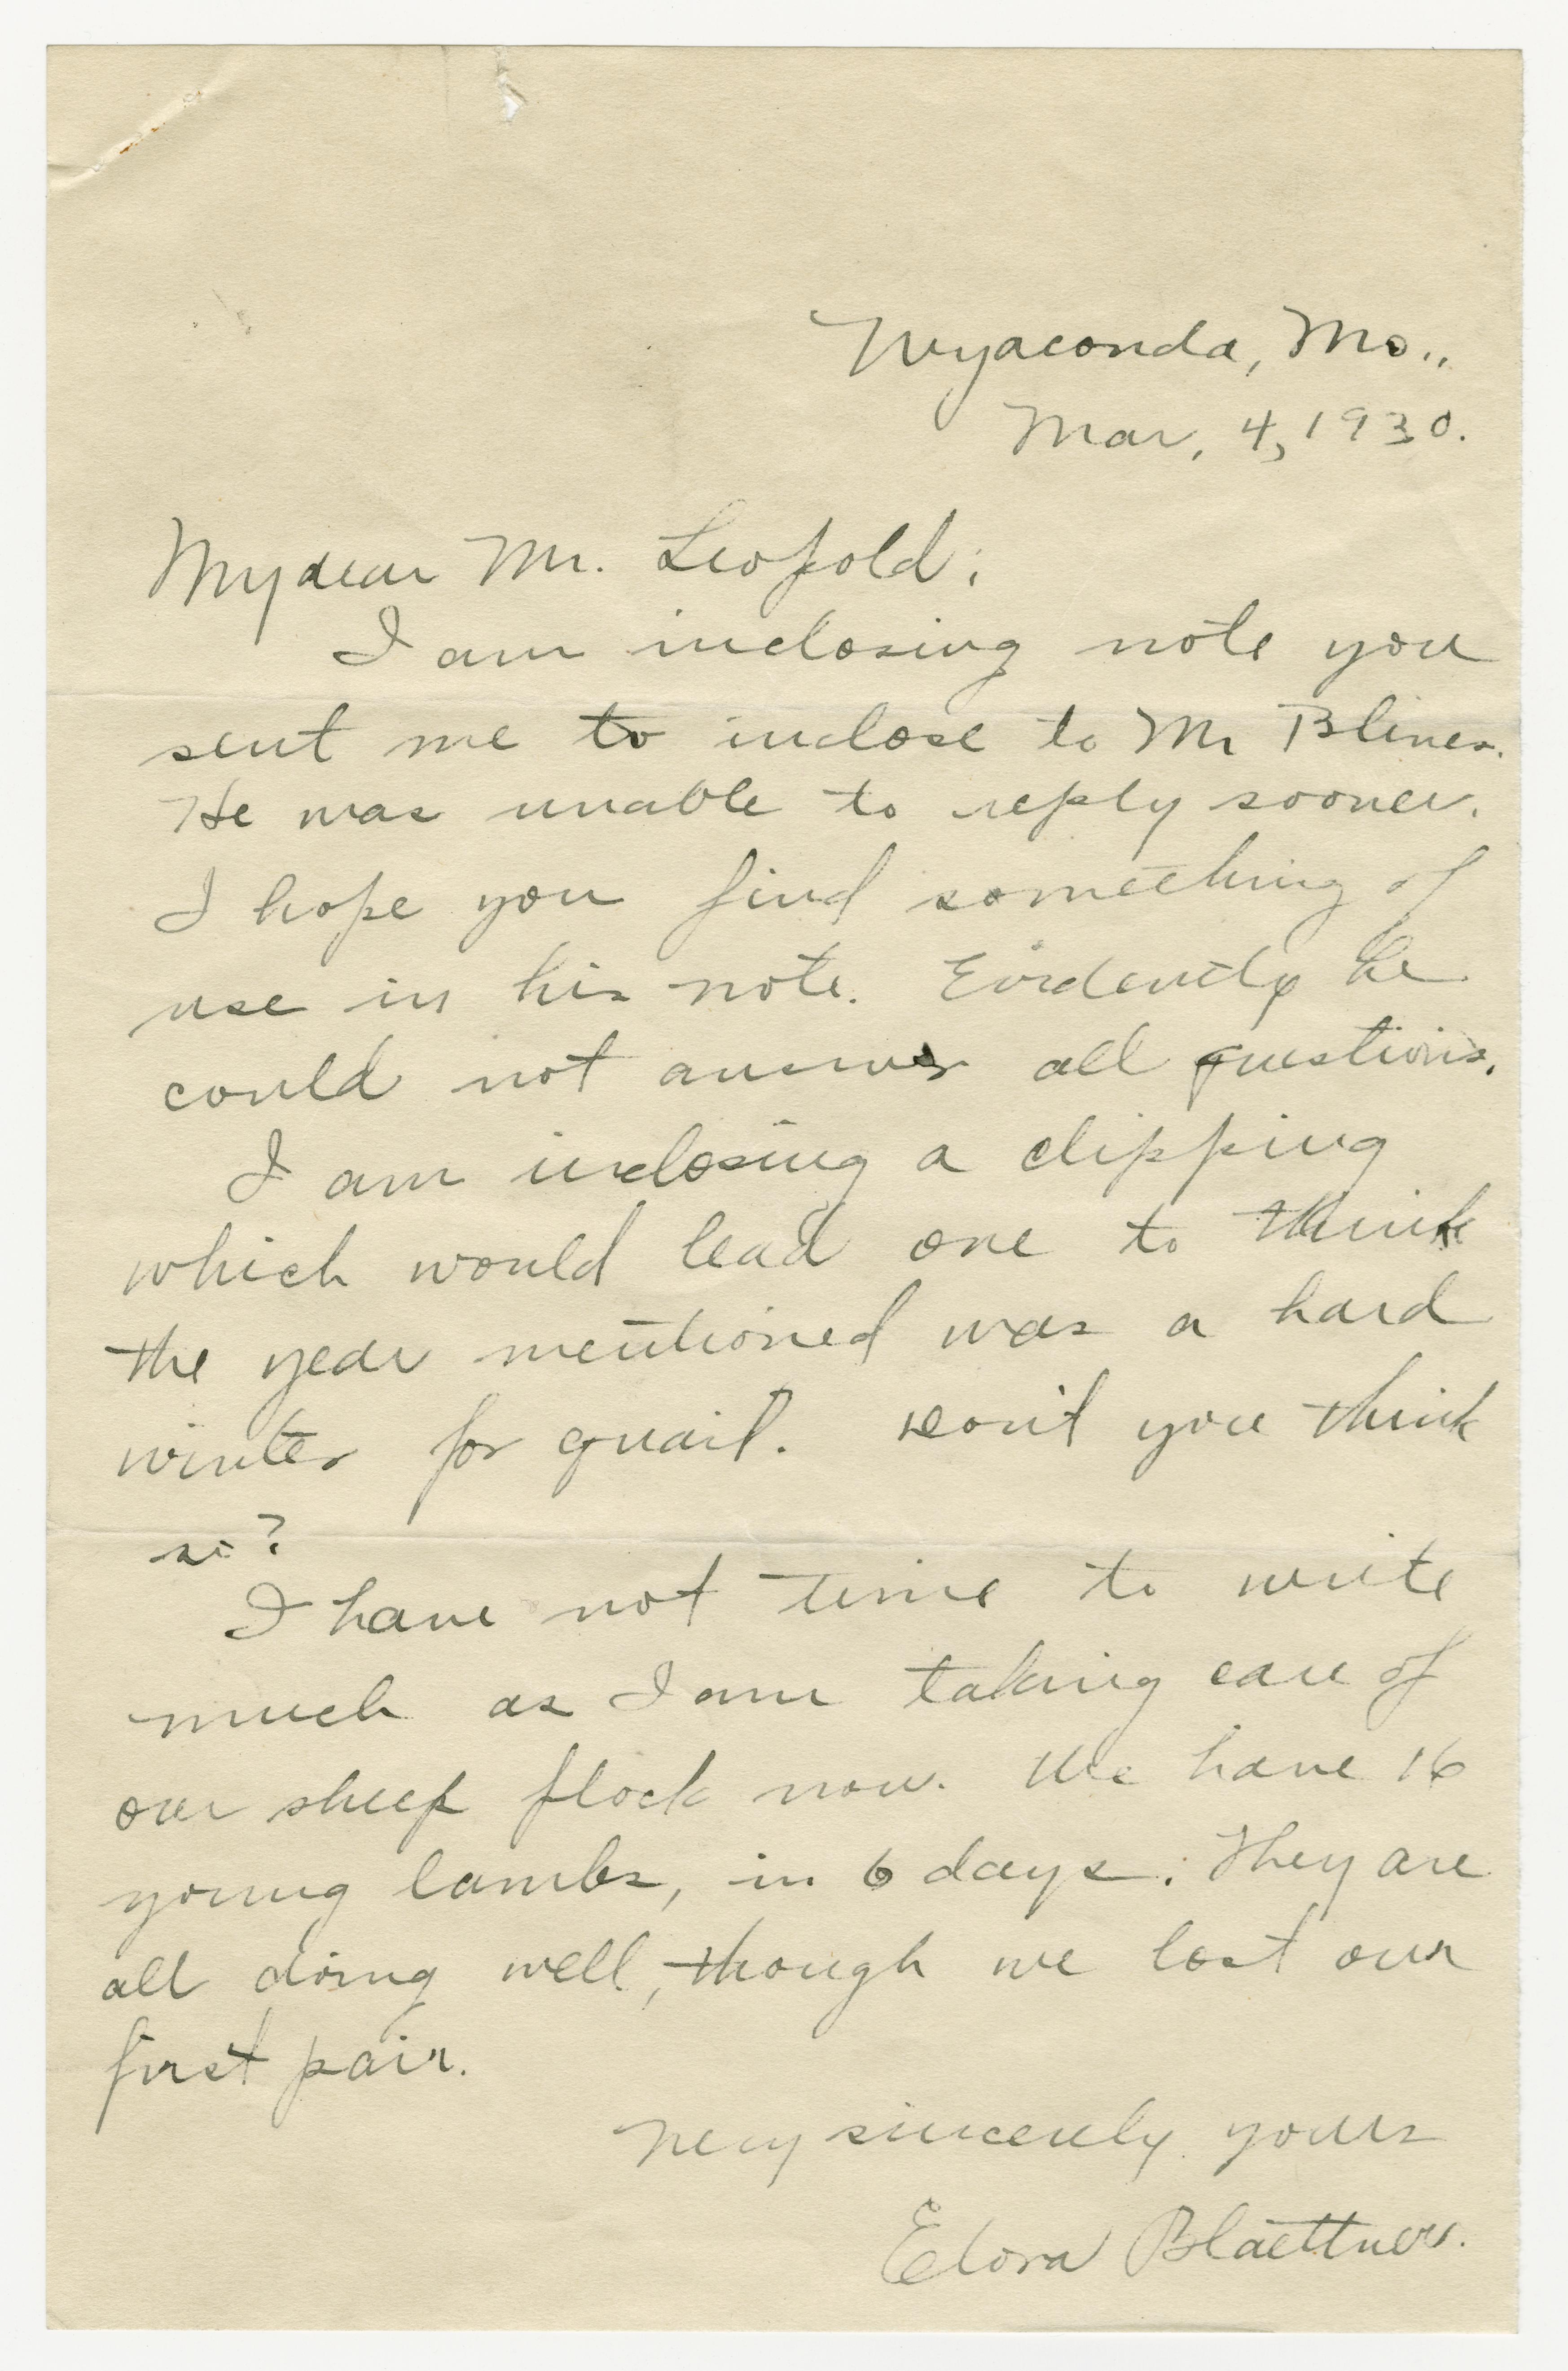 Wyaconda, Mo.,
Mar. 4, 1930.
My dear Mr. Leopold:
I am inclosing note you
sent me to inclose to Mr Bliner.
He was unable to reply sooner.
I hope you find something of
use in his note. Evidently he
could not answer all questions.
I am inclosing a clipping
which would lead one to think
the year mentioned was a hard
winter for quail. Don't you think
so?
I have not time to write
much as I am taking care of
our sheep flock now. We have 16
young lambs, in 6 days. They are
all doing well, though we lost our
first pair.
Very sincerely yours
Elora Blaettner.